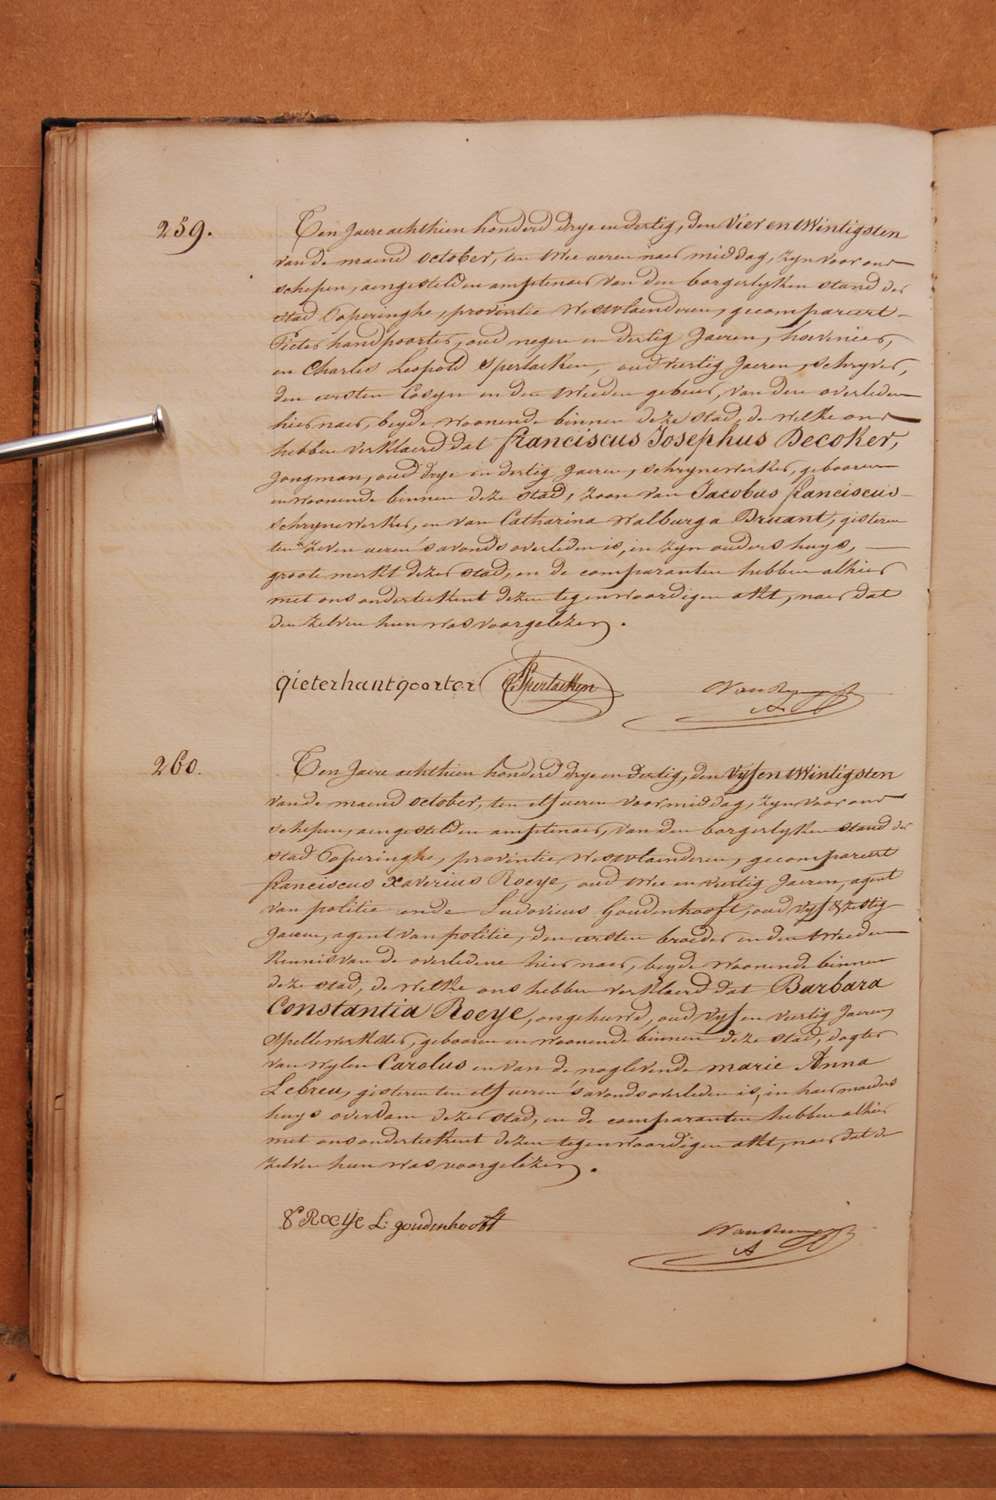 259.
Ten Jaere achthien honderd drye en dertig, den Vier en twintigsten
van de maend october, ten twee ueren naer middag, zyn voor ons
schepen, aengestelden amptenaer van den borgerlyken stand der
stad Poperinghe, provintie Westvlaenderen, gecompareert
Pieter handpoorter, oud negen en dertig Jaeren, hovenier,
en Charles Leopold Sperlaeken, oud viertig Jaeren, schryver,
den eersten Cosyn en den tweeden gebeur, van den overleden
hier naer, beyde woonende binnen deze stad, de welke ons
hebben verklaerd dat franciscus Josephus Decoker,
Jongman, oud drye en dertig Jaeren, schrynewerker, gebooren
en woonende binnen deze stad, zoon van Jacobus franciscus
schrynewerker, en van Catharina Walburga Druant, gisteren
ten zeven ueren 's avonds overleden is, in zyn ouders huys,
groote merkt dezer stad, en de comparanten hebben alhier
met ons onderteekent dezen tegenwoordigen akt, naer dat
den zelven hun was voorgelezen.
pieter hantpoorter C L Sperlaeken
260.
Ten Jaere achthien honderd drye en dertig, den Vyf en twintigsten
van de maend october, ten elf ueren voormiddag, zyn voor ons
schepen, aengestelden amptenaer, van den borgerlyken stand der
stad Poperinghe, provintie Westvlaenderen, gecompareert
franciscus Xaverius Roeye, oud twee en viertig Jaeren, agent
van politie ende Ludovicus Goudenhooft, oud vyf & zestig
Jaeren, agent van politie, den eersten broeder en den tweeden
kennis van de overledene hier naer, beyde woonende binnen
deze stad, de welke ons hebben verklaerd dat Barbara
Constantia Roeye, ongehuwd, oud vyf en viertig Jaeren,
Spellewerkster, gebooren en woonende binnen deze stad, dogter
van wylen Carolus en van de naglevende marie Anna
Lebreu, gisteren ten elf ueren 's avonds overleden is, in haer moeders
huys overdam dezer stad, en de comparanten hebben alhier
met ons onderteekent dezen tegenwoordigen akt, naer dat de
zelven hun was voorgelezen.
Roeye L: goudenhooft